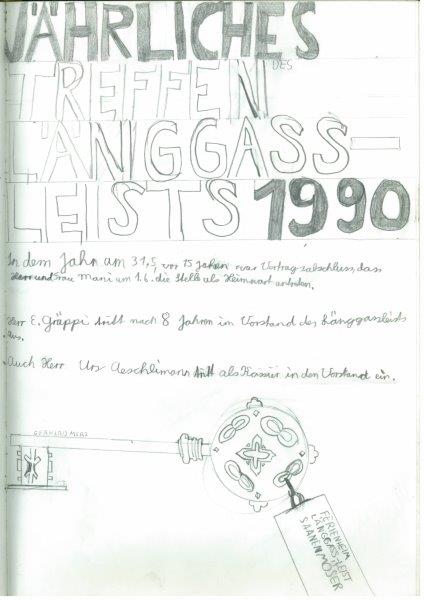 JÄHRLICHES
TREFFEN DES
LÄNGGASS-
LEISTS 1990
In dem Jahr am 31.5, vor 15 Jahren war Vertragsabschluss, dass
Herr und Frau Mani am 1.6. die Stelle als Heimwart antraten.
Herr E. Gräppi tritt nach 8 Jahren im Vorstand des Länggassleists
aus.
Auch Herr Urs Aeschlimann tritt als Kassier in den Vorstand ein.
GERHARD MERZ
FERIENHEIM
LÄNGGASS-LEIST
SAANENMÖSER